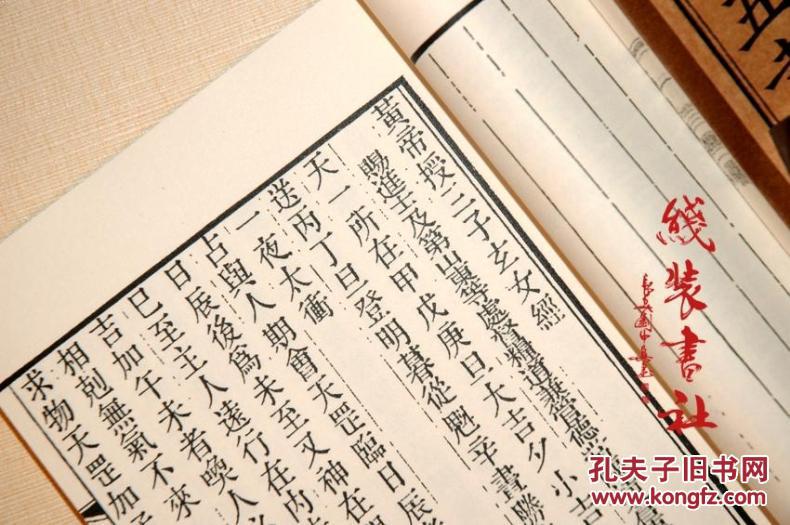 黃帝授三子玄女經
賜進士及第山東等處督糧道兼管德常
天一所在甲戊庚旦大吉夕小吉
送丙丁旦登明暮從魁辛晝勝
一夜太衝
占與人期會天罡臨日辰
日辰後爲未至又神在
已至主人遠行在內
吉加午未者喚人
相剋無氣不來
求物天罡加
线装書社
孔夫子旧书网
www.kongfz.com
五